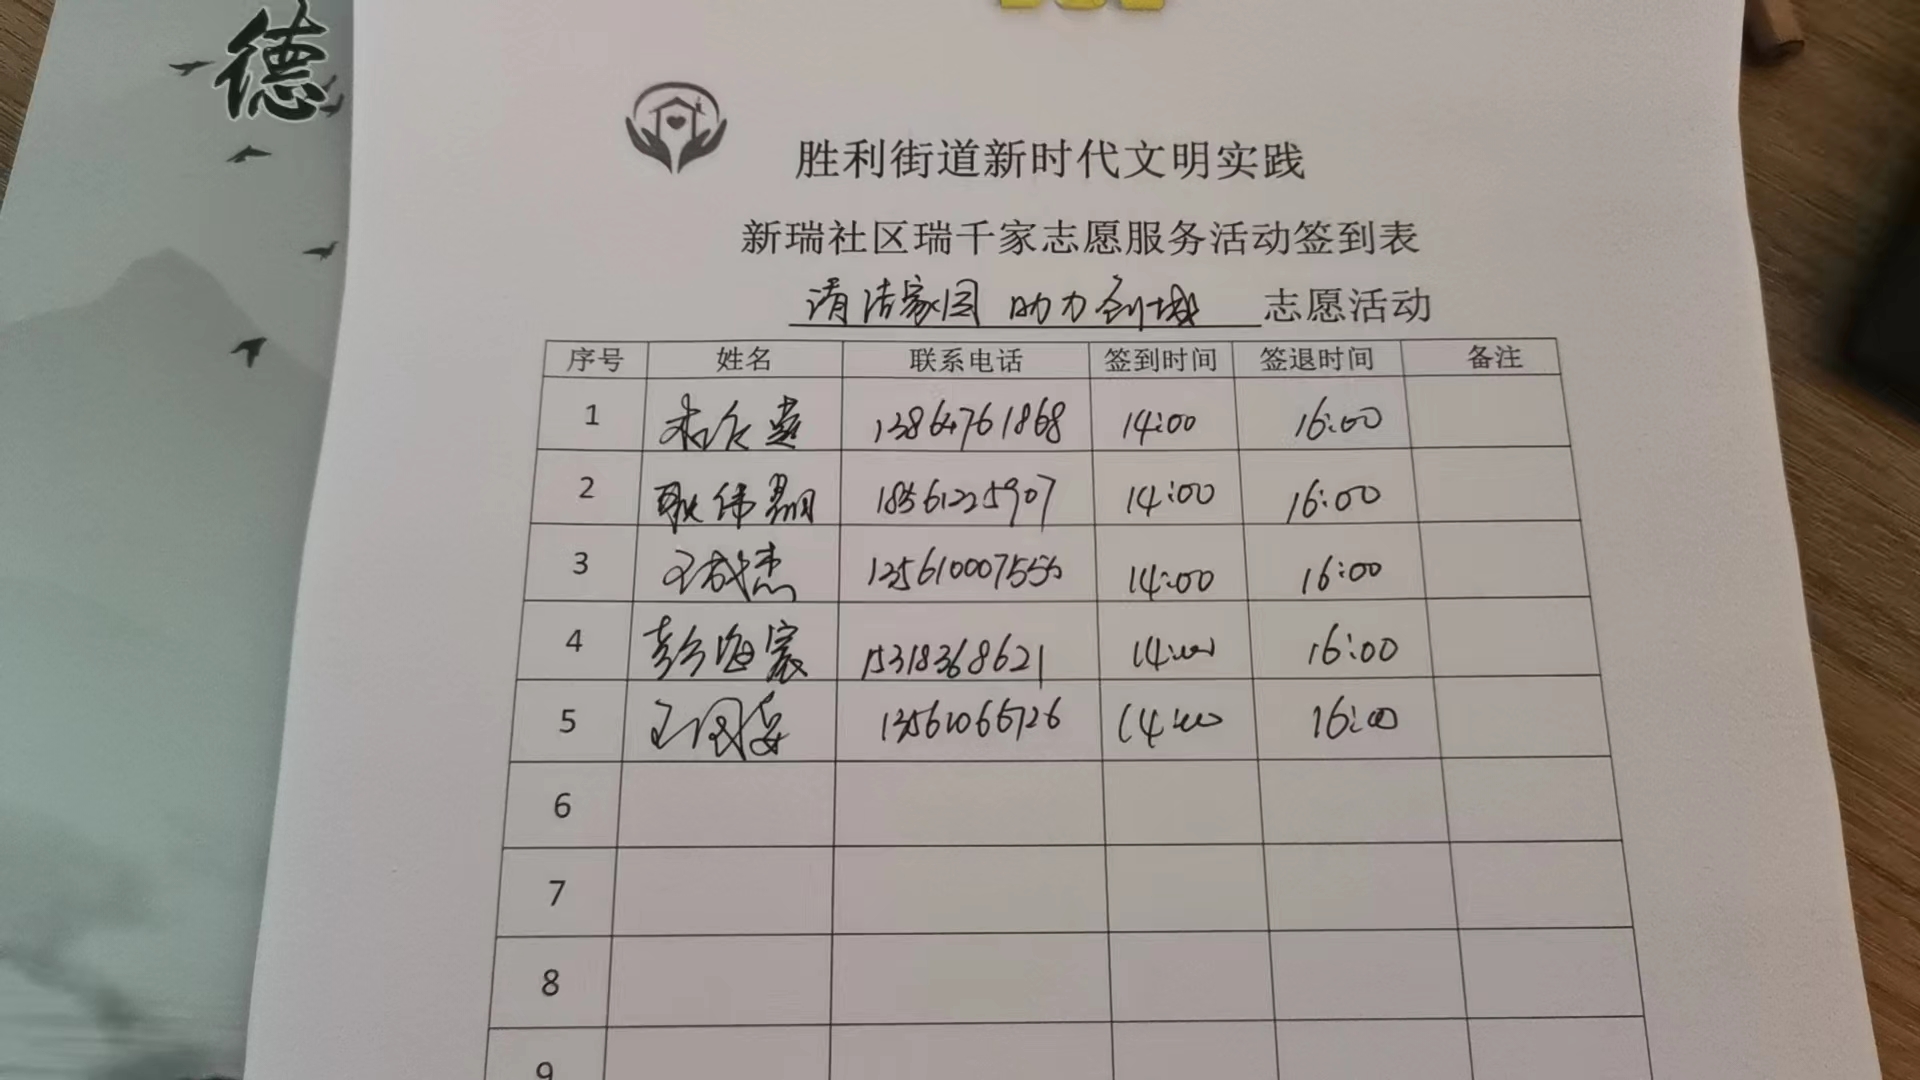 德
胜利街道新时代文明实践
新瑞社区瑞千家志愿服务活动签到表
清洁家园 助力创城 志愿活动
序号 姓名 联系电话 签到时间 签退时间 备注
1 13864761868 14:00 16:00
2 耿伟 18561225907 14:00 16:00
3 王成杰 135610007555 14:00 16:00
4 彭海宸 15318368621 14:00 16:00
5 王国安 13561066726 14:00 16:00
6
7
8
9